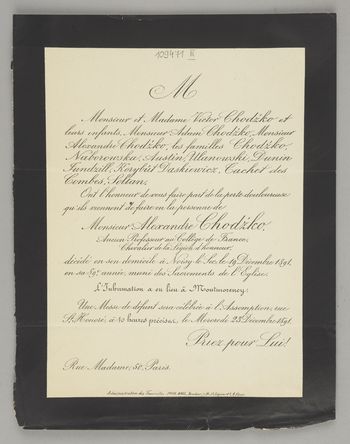 109471 II
M
Monsieur et Madame Victor Chodźko et
leurs enfants, Monsieur Adam Chodźko, Monsieur
Alexandre Chodźko, les familles Chodźko,
Nieborowska, Austin, Ulanowski, Dunin
Jundzill, Korybut Daskiewicz, Cachet des
Combes, Soltan,
Ont l'honneur de vous faire part de la perte douloureuse
qu'ils viennent de faire en la personne de
Monsieur Alexandre Chodźko,
Ancien Professeur au Collège de France,
Chevalier de la Légion d'honneur,
décédé en son domicile à Noisy le Sec, le 19 Décembre 1891,
en sa 89e année, muni des Sacrements de l'Eglise.
L'Inhumation a eu lieu à Montmorency.
Une Messe de défunt sera célébrée à l'Assomption, rue
St Honoré, à 10 heures précises, le Mercredi 23 Décembre 1891.
Priez pour Lui!
Rue Madame, 50, Paris.
Administration des Funérailles